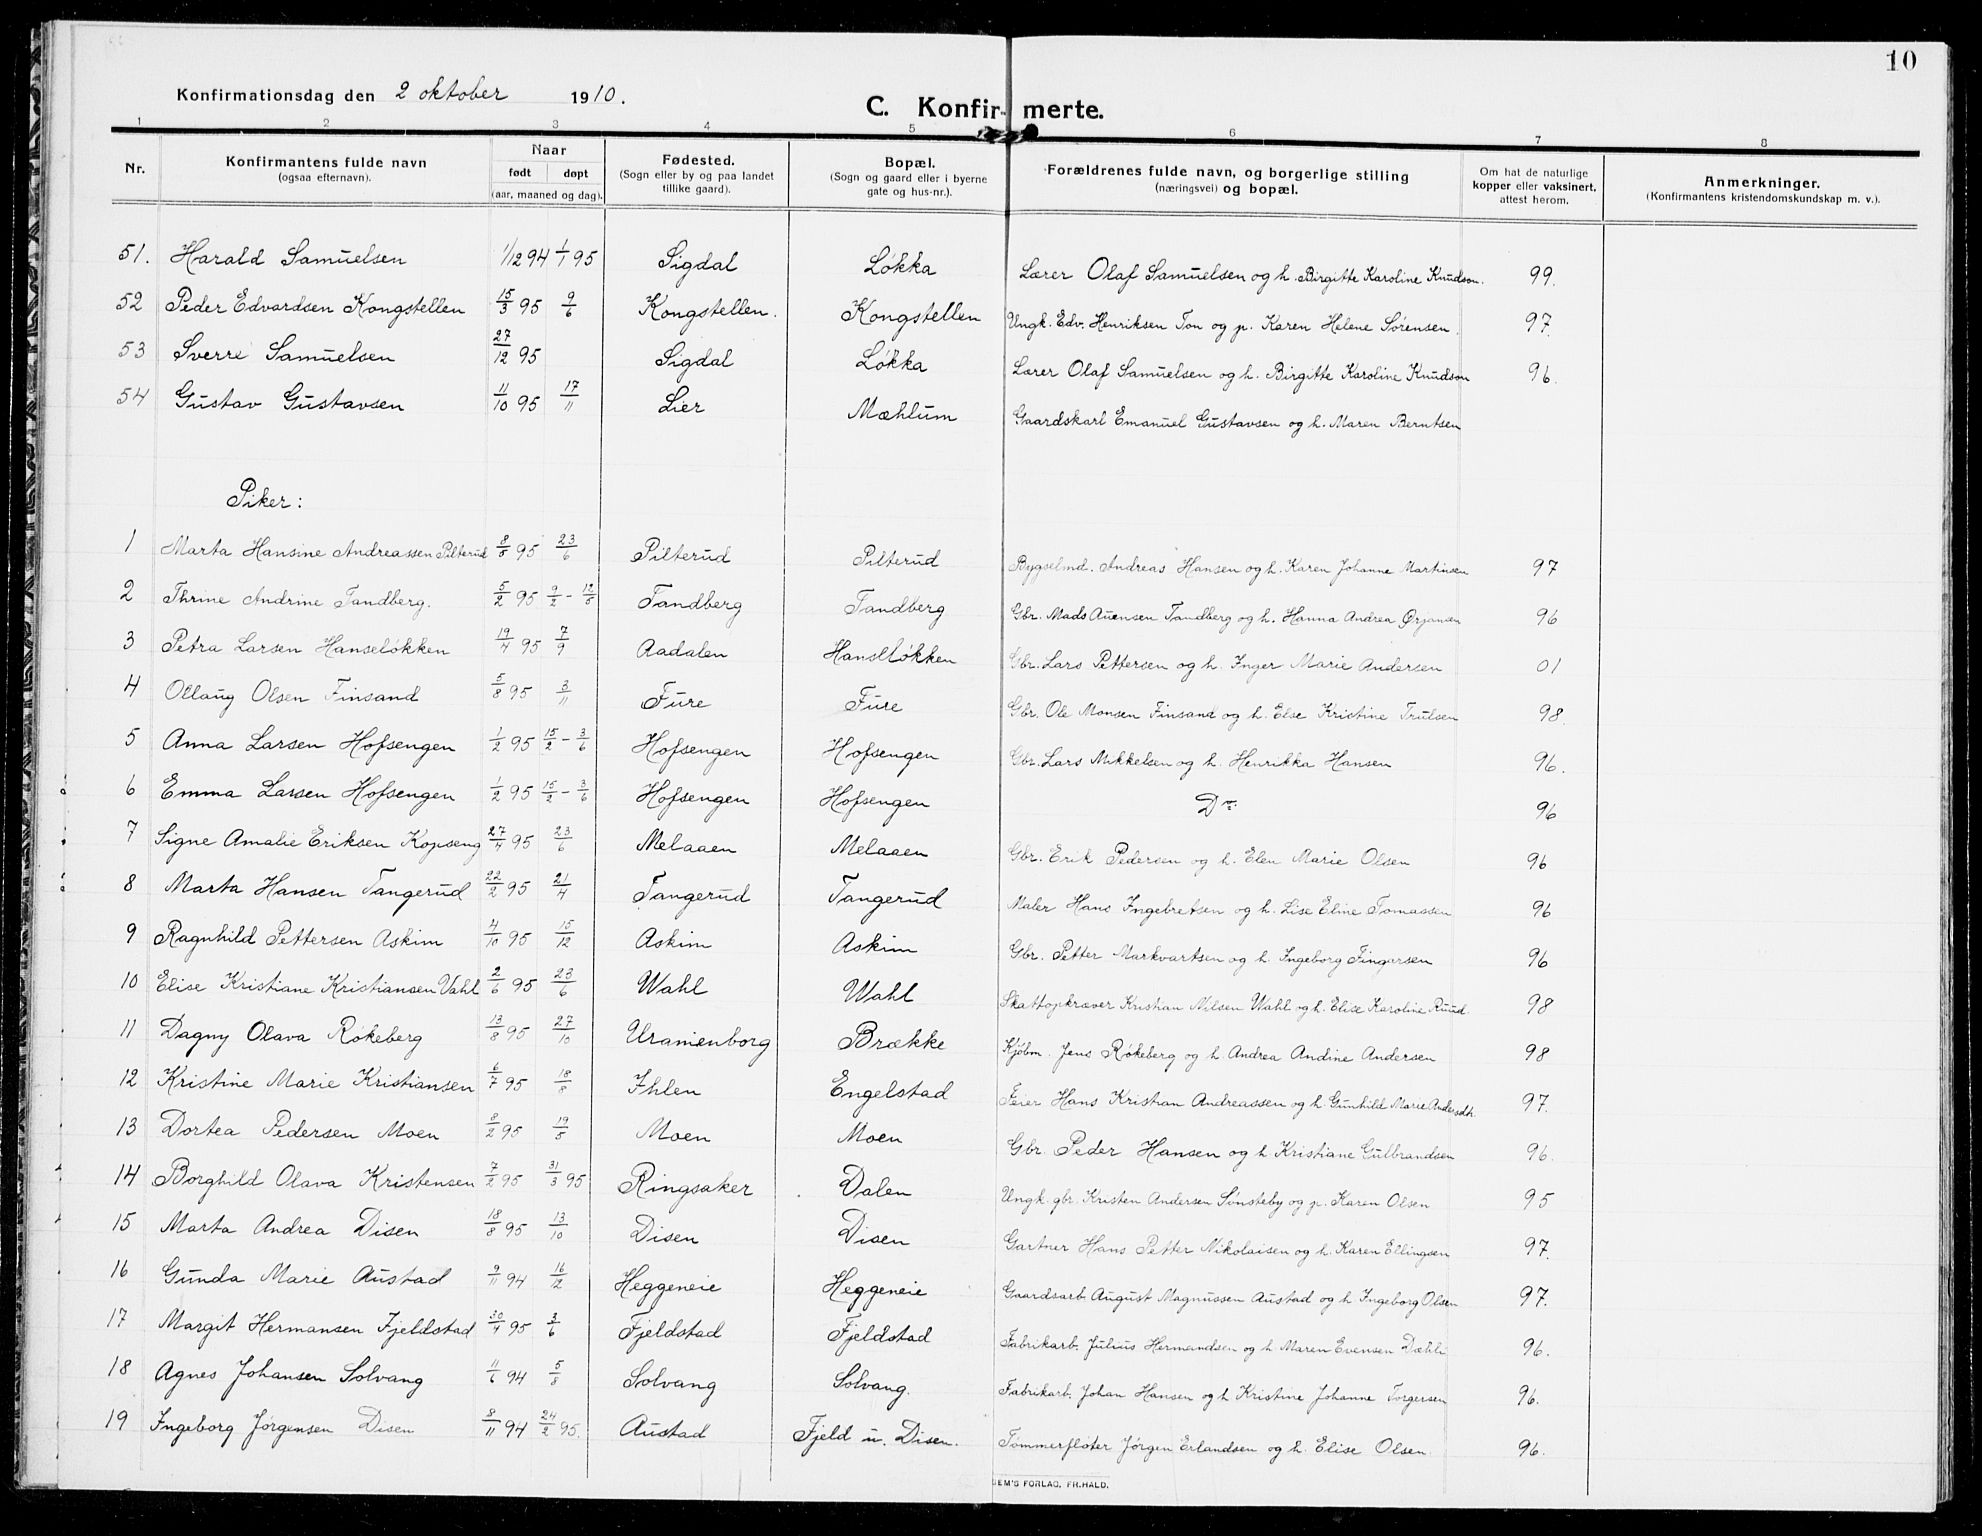 10
Konfirmationsdag den 2 oktober 1910.
C. Konfir- merte.
1 2 3 4 5 6 7 8
Nr. Konfirmantens fulde navn (ogsaa efternavn). Naar født døpt (aar, maaned og dag). Fødested. (Sogn eller by og paa landet tillike gaard). Bopæl. (Sogn og gaard eller i byerne gate og hus-nr.). Forældrenes fulde navn, og borgerlige stilling (næringsvei) og bopæl. Om hat de naturlige kopper eller vaksinert, attest herom. Anmerkninger. (Konfirmantens kristendomskundskap m. v.).
51. Harald Samuelsen 1/12 94 1/1 95 Sigdal Løkka Lærer Olaf Samuelsen og h. Birgitte Karoline Knudson. 99.
52 Peder Edvardsen Kongstellen 15/3 95 9/6 Kongstellen. Kongstellen Ungk. Edv. Henriksen Ton og p. Karen Helene Sørensen. 97.
53 Sverre Samuelsen 27/12 95 Sigdal Løkka Lærer Olaf Samuelsen og h. Birgitte Karoline Knudson 96.
54 Gustav Gustavsen 11/10 95 17/11 Lier Mæhlum Gaardskarl Emanuel Gustavsen og h. Maren Berntsen
Piker:
1 Marta Hansine Andreassen Pilterud 8/5 95 23/6 Pilterud Pilterud Bygselmd. Andreas Hansen og h. Karen Johanne Martinsen 97
2 Thrine Andrine Tandberg. 5/2 95 9/2 - 12/5 Tandberg Tandberg Gbr. Mads Auensen Tandberg og h. Hanna Andrea Ørjansen 96
3 Petra Larsen Hanseløkken 19/4 95 7/9 Aadalen Hanseløkken Gbr. Lars Pettersen og h. Inger Marie Andersen 01
4 Ollaug Olsen Finsand 5/8 95 3/11 Fure Fure Gbr. Ole Monsen Finsand og h. Else Kristine Trulsen 98.
5 Anna Larsen Hofsengen 1/2 95 15/2 - 3/6 Hofsengen Hofsengen Gbr. Lars Mikkelsen og h. Henrikka Hansen 96.
6 Emma Larsen Hofsengen 1/2 95 15/2 - 3/6 Hofsengen Hofsengen Do. 96
7 Signe Amalie Eriksen Kopseng 27/4 95 23/6 Melaaen Melaaen Gbr. Erik Pedersen og h. Elen Marie Olsen 96
8 Marta Hansen Tangerud 22/2 95 21/4 Tangerud Tangerud Maler Hans Ingebretsen og h. Lise Eline Tomassen 96
9 Ragnhild Pettersen Askim 4/10 95 15/12 Askim Askim Gbr. Petter Markvartsen og h. Ingeborg Fingarsen 96
10 Elise Kristiane Kristiansen Vahl 2/6 95 23/6 Wahl Wahl Skattopkræver Kristian Nilsen Wahl og h. Elise Karoline Ruud. 98
11 Dagny Olava Røkeberg 13/8 95 27/10 Uranienborg Brække Kjøbm. Jens Røkeberg og h. Andrea Andine Andersen 98
12 Kristine Marie Kristiansen 6/7 95 18/8 Ihlen Engelstad Feier Hans Kristian Andreassen og h. Gunhild Marie Andersdt. 97.
13 Dortea Pedersen Moen 8/2 95 19/5 Moen Moen Gbr. Peder Hansen og h. Kristiane Gulbrandsen 96.
14 Borghild Olava Kristensen 7/2 95 31/3 95 Ringsaker Dalen Ungk. gbr. Kristen Andersen Sønsteby og p. Karen Olsen 95
15 Marta Andrea Disen 18/8 95 13/10 Disen Disen Gartner Hans Petter Nikolaisen og h. Karen Ellingsen 97.
16 Gunda Marie Austad 9/11 94 16/12 Heggeneie Heggeneie Gaardsarb. August Magnussen Austad og h Ingeborg Olsen 97.
17 Margit Hermansen Fjeldstad 30/4 95 3/6 Fjeldstad Fjeldstad Fabrikarb. Julius Hermandsen og h. Maren Evensen Dæhli 96.
18 Agnes Johansen Solvang 11/6 94 5/8 Solvang Solvang. Fabrikarb. Johan Hansen og h Kristine Johanne Torgersen 96.
19 Ingeborg Jørgensen Disen 8/11 94 24/2 95. Austad Fjeld u. Disen. Tømmerfløter Jørgen Erlandsen og h. Elise Olsen. 96.
EM'S FORLAG, FR. HALD.